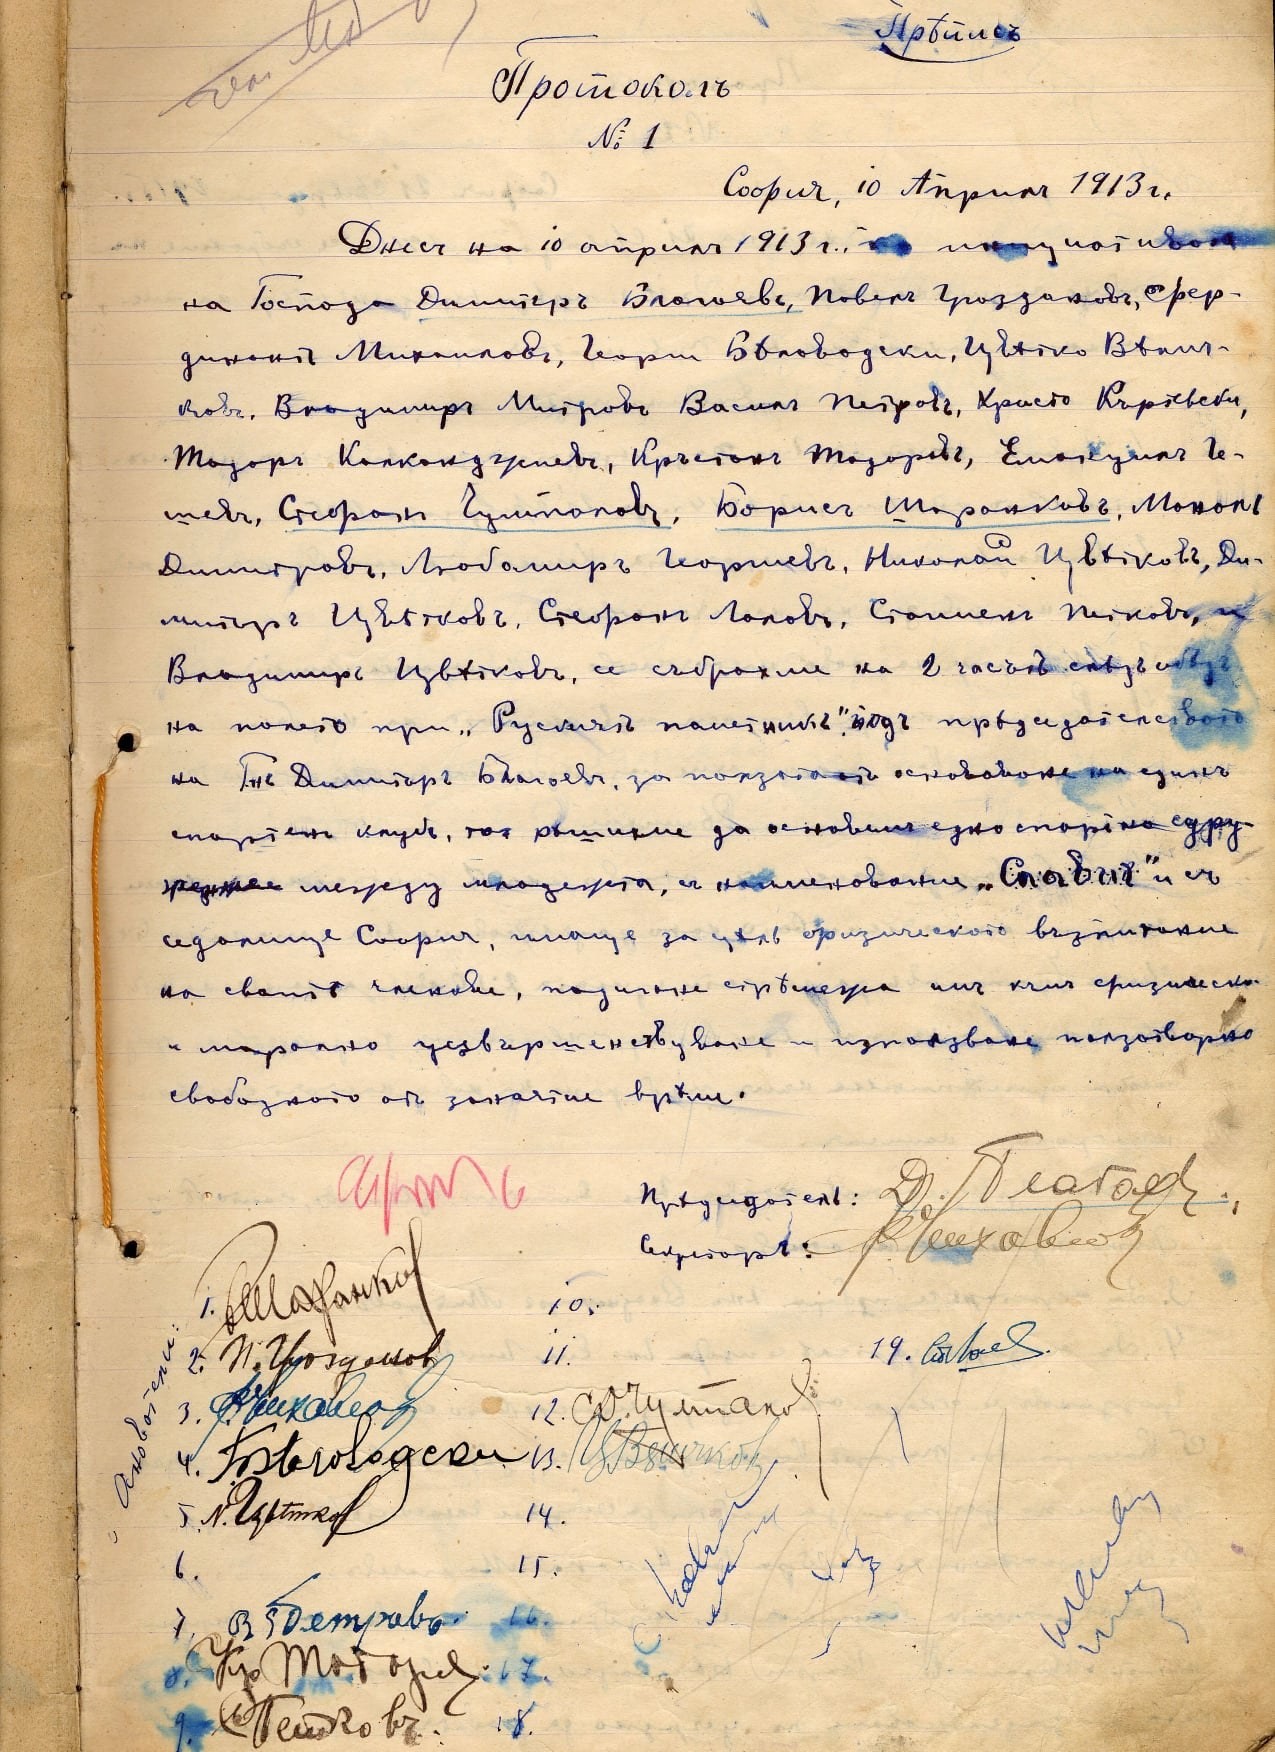 Прѣписъ
Протоколъ
№ 1
София, 10 Априлъ 1913 г.
Днесъ на 10 априлъ 1913 г., по инициатива
на Господа Димитъръ Благоевъ, Павелъ Гроздановъ, Фер-
динандъ Михайловъ, Георги Бѣловодски, Цвѣтко Вѣлич-
ковъ, Владимиръ Митровъ Василъ Петровъ, Христо
Тодоръ Калканджиевъ, Кръстанъ Тодоровъ, Ге-
шевъ, Стефанъ Чумпаловъ, Борисъ Шаранковъ, Манолъ
Димитровъ, Любомиръ Георгиевъ, Николай Цвѣтковъ, Ди-
митъръ Цвѣтковъ, Стефанъ Лаловъ, Стаменъ Петковъ, и
Владимиръ Цвѣтковъ, се събрахме на 2 часътъ слѣдъ обѣдъ
на полето при „Руския паметникъ", подъ прѣдседателството
на Г-нъ Димитъръ Благоевъ, за ползата отъ основаване на единъ
спортенъ клубъ, рѣшихме да основемъ едно спортно сдру-
жение между младежта, съ наименование „Славия" и съ
седалище София, имаще за цѣль физическото възпитание
на своитѣ членове, подигане стрѣмежа имъ къмъ физическо
и морално усъвършенствуване и използване ползотворно
свободното отъ занятие врѣме.
Прѣдседатель: Д. Благоевъ
Секретарь: Ф. Михайлов
Основатели:
1. Б. Шаранков
2. П. Грозданов
3. Ф. Михайлов
4. Г. Бѣловодски
5. Н. Цвѣтков
6.
7. В. Петровъ
8. Кр. Тодоров
9. С. Петковъ.
10.
11.
12. С. Д. Чумпалов
13. Ц. Величков
14.
15.
16.
17.
18.
19.